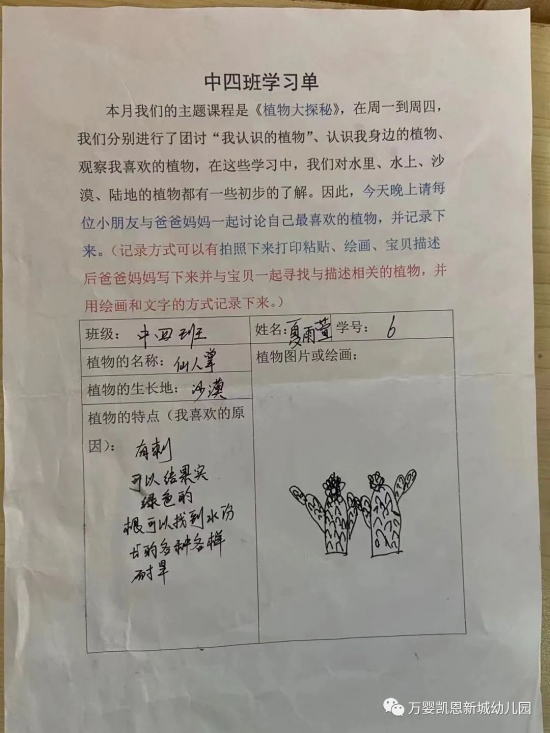 中四班学习单
本月我们的主题课程是《植物大探秘》，在周一到周四，
我们分别进行了团讨“我认识的植物”、认识我身边的植物、
观察我喜欢的植物，在这些学习中，我们对水里、水上、沙
漠、陆地的植物都有一些初步的了解。因此，今天晚上请每
位小朋友与爸爸妈妈一起讨论自己最喜欢的植物，并记录下
来。（记录方式可以有拍照下来打印粘贴、绘画、宝贝描述
后爸爸妈妈写下来并与宝贝一起寻找与描述相关的植物，并
用绘画和文字的方式记录下来。）
班级： 中四班 姓名：夏雨萱 学号： 6
植物的名称：仙人掌 植物图片或绘画：
植物的生长地：沙漠
植物的特点（我喜欢的原
因）： 有刺
可以结果实
绿色的
根可以找到水份
长的各种各样
耐旱
万婴凯恩新城幼儿园